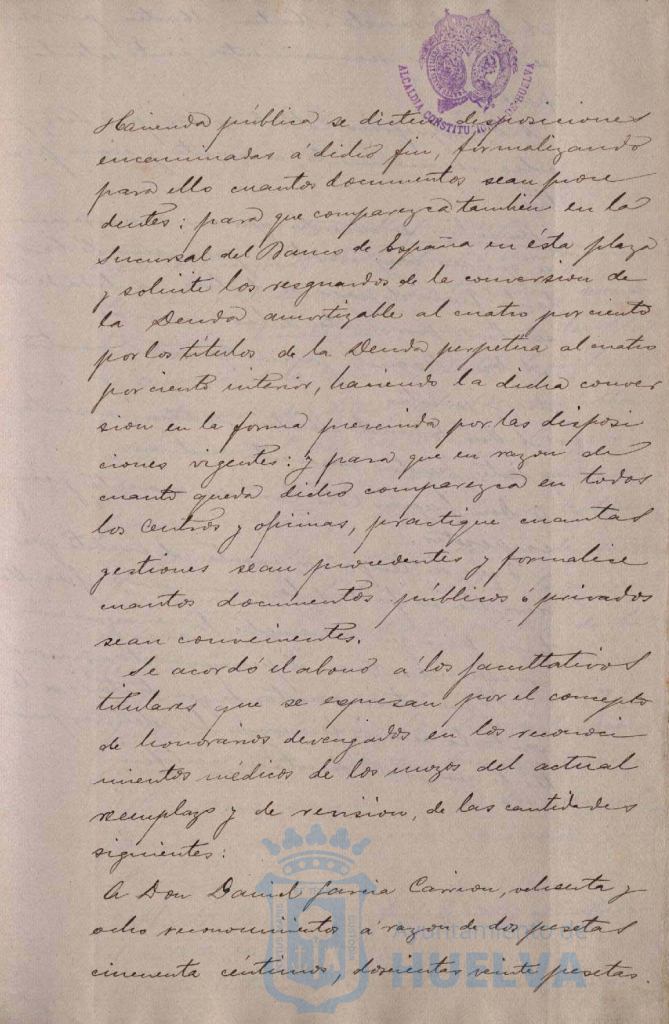 ALCALDIA CONSTITUCIONAL DE HUELVA
Hacienda pública se dicten disposiciones
encaminadas á dicho fin, formalizando
para ello cuantos documentos sean proce
dentes: para que comparezca tambien en la
Sucursal del Banco de España en ésta plaza
y solicite los resguardos de la conversion de
la Deuda amortizable al cuatro por ciento
por los títulos de la Deuda perpetua al cuatro
por ciento interior, haciendo la dicha conver
sion en la forma prevenida por las disposi
ciones vigentes: y para que en razon de
cuanto queda dicho comparezca en todos
los centros y oficinas, practique cuantas
gestiones sean procedentes y formalice
cuantos documentos públicos ó privados
sean convenientes.
Se acordó el abono á los facultativos
titulares que se expresan por el concepto
de honorarios devengados en los reconoci
mientos médicos de los mozos del actual
reemplazo y de revision, de las cantidades
siguientes:
A Don Daniel Garcia Carrion, ochenta y
ocho reconocimientos á razon de dos pesetas
cincuenta céntimos, doscientas veinte pesetas.
Ayuntamiento de
HUELVA